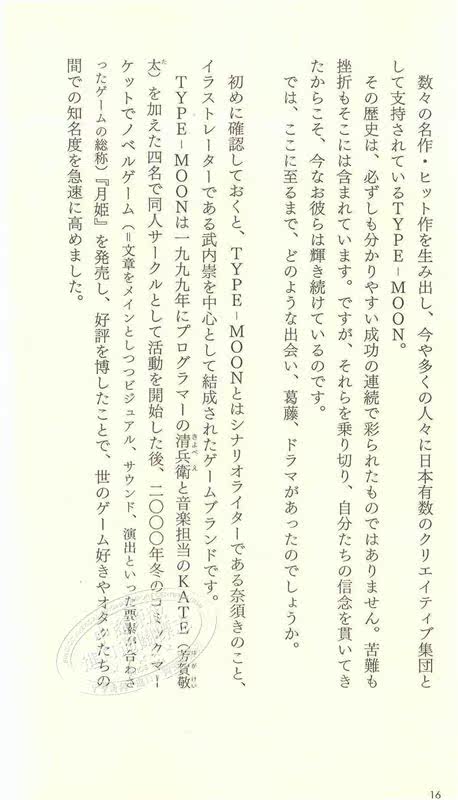 数々の名作・ヒット作を生み出し、今や多くの人々に日本有数のクリエイティブ集団と
して支持されているTYPE-MOON。
その歴史は、必ずしも分かりやすい成功の連続で彩られたものではありません。苦難も
挫折もそこには含まれています。ですが、それらを乗り切り、自分たちの信念を貫いてき
たからこそ、今なお彼らは輝き続けているのです。
では、ここに至るまで、どのような出会い、葛藤、ドラマがあったのでしょうか。
初めに確認しておくと、TYPE-MOONとはシナリオライターである奈須きのこと、
イラストレーターである武内崇を中心として結成されたゲームブランドです。
TYPE-MOONは一九九九年にプログラマーの清兵衛と音楽担当のKATE（芳賀敬
太）を加えた四名で同人サークルとして活動を開始した後、二〇〇〇年冬のコミックマー
ケットでノベルゲーム（＝文章をメインとしつつビジュアル、サウンド、演出といった要素が合わさ
ったゲームの総称）『月姫』を発売し、好評を博したことで、世のゲーム好きやオタクたちの
間での知名度を急速に高めました。
16